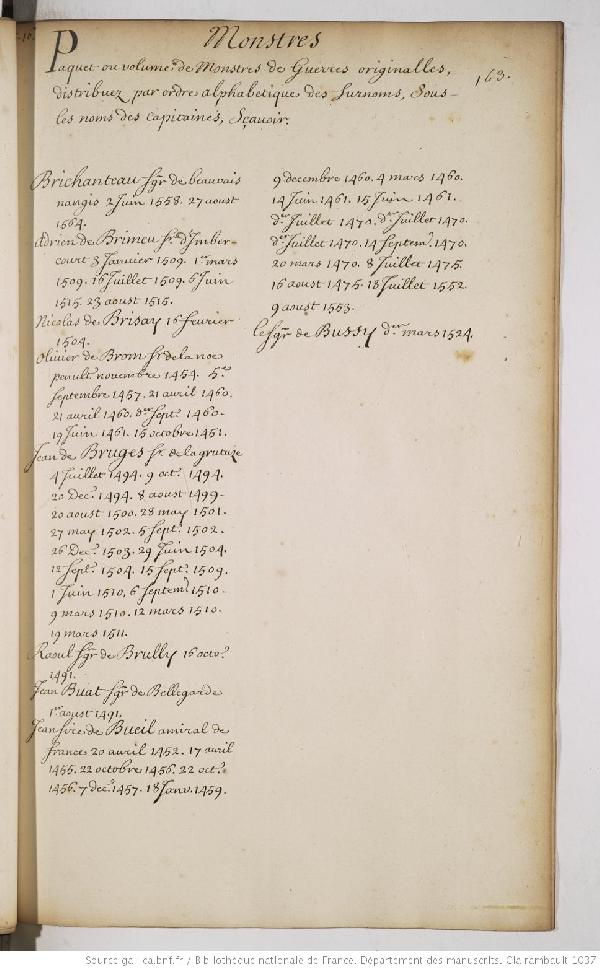 Monstres
163.
Paquet ou volume de Monstres de Guerres originalles,
distribuez par ordre alphabetique des surnoms, Sous
les noms des Capitaines, Sçauoir.
Brichanteau sgr de beauvais
nangis 2 Juin 1558. 27 aoust
1564.
Adrien de Brimeu sr. d'Imber-
court 3 Janvier 1509. 1er mars
1509. 16 Juillet 1509. 6 Juin
1515. 23 aoust 1515.
Nicolas de Brisay 16 feurier
1504.
Olivier de Brom sr. de la noe
perault novembre 1454.
Septembre 1457. 21 avril 1460.
21 avril 1460. der Sept. 1460.
19 Juin 1461. 15 octobre 1451.
Jean de Bruges sr. de la grutuze
4 Juillet 1494. 9 oct. 1494.
20 Dec. 1494. 8 aoust 1499.
20 aoust 1500. 28 may 1501.
27 may 1502. 5 Sept. 1502.
26 Dec. 1503. 29 Juin 1504.
12 Sept. 1504. 15 Sept. 1509.
1 Juin 1510. 6 Septem. 1510.
9 mars 1510. 12 mars 1510.
19 mars 1511.
Raoul sgr de Brully 16 octo.
1491.
Jean Buat sgr de Bellegarde
1er aoust 1491.
Jean sire de Bueil amiral de
france 20 avril 1452. 17 avril
1455. 22 octobre 1456. 22 oct.
1456. 7 dec. 1457. 18 Janv. 1459.
9 decembre 1460. 4 mars 1460.
14 Juin 1461. 15 Juin 1461.
der Juillet 1470. der Juillet 1470.
der Juillet 1470. 14 Septem. 1470.
20 mars 1470. 8 Juillet 1475.
16 aoust 1475. 18 Juillet 1552.
9 aoust 1553.
le sgr de Bussy der mars 1524.
Source gallica.bnf.fr / Bibliothèque nationale de France. Département des manuscrits. Clairambault 1037